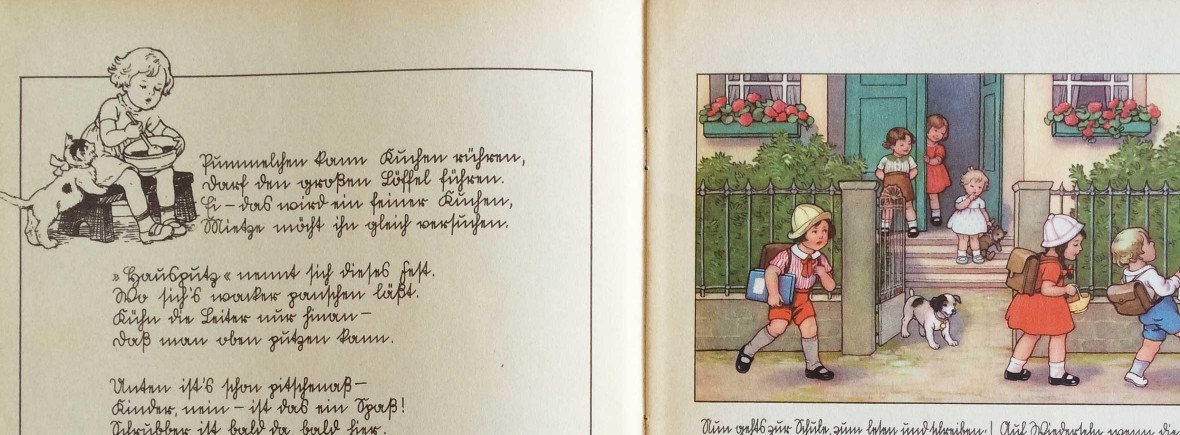 Pummelchen kann Kuchen rühren,
Darf den großen Löffel führen.
Ei – das wird ein feiner Kuchen,
Mieze möcht ihn gleich versuchen.
»Hausputz« nennt sich dieses Fest.
Wo sich's wacker panschen läßt.
Kühn die Leiter nur hinan –
Daß man oben putzen kann.
Unten ist's schon pitschenaß –
Kinder, nein – ist das ein Spaß!
Schrubber ist bald da, bald hier.
Nun gehts zur Schule, zum lesen und schreiben! Auf Wiedersehn wenn die